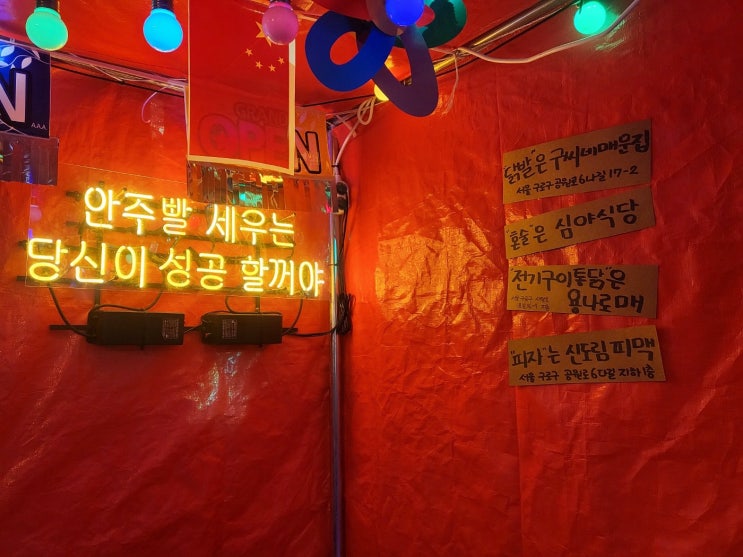 N
A.A.A
GRAND
OPEN
안주빨 세우는
당신이 성공 할꺼야
"닭발"은 구씨네매운집
서울 구로구 공원로6나길 17-2
"혼술"은 심야식당
"전기구이통닭"은
용나로매
"피자"는 신도림피맥
서울 구로구 공원로6다길 지하1층